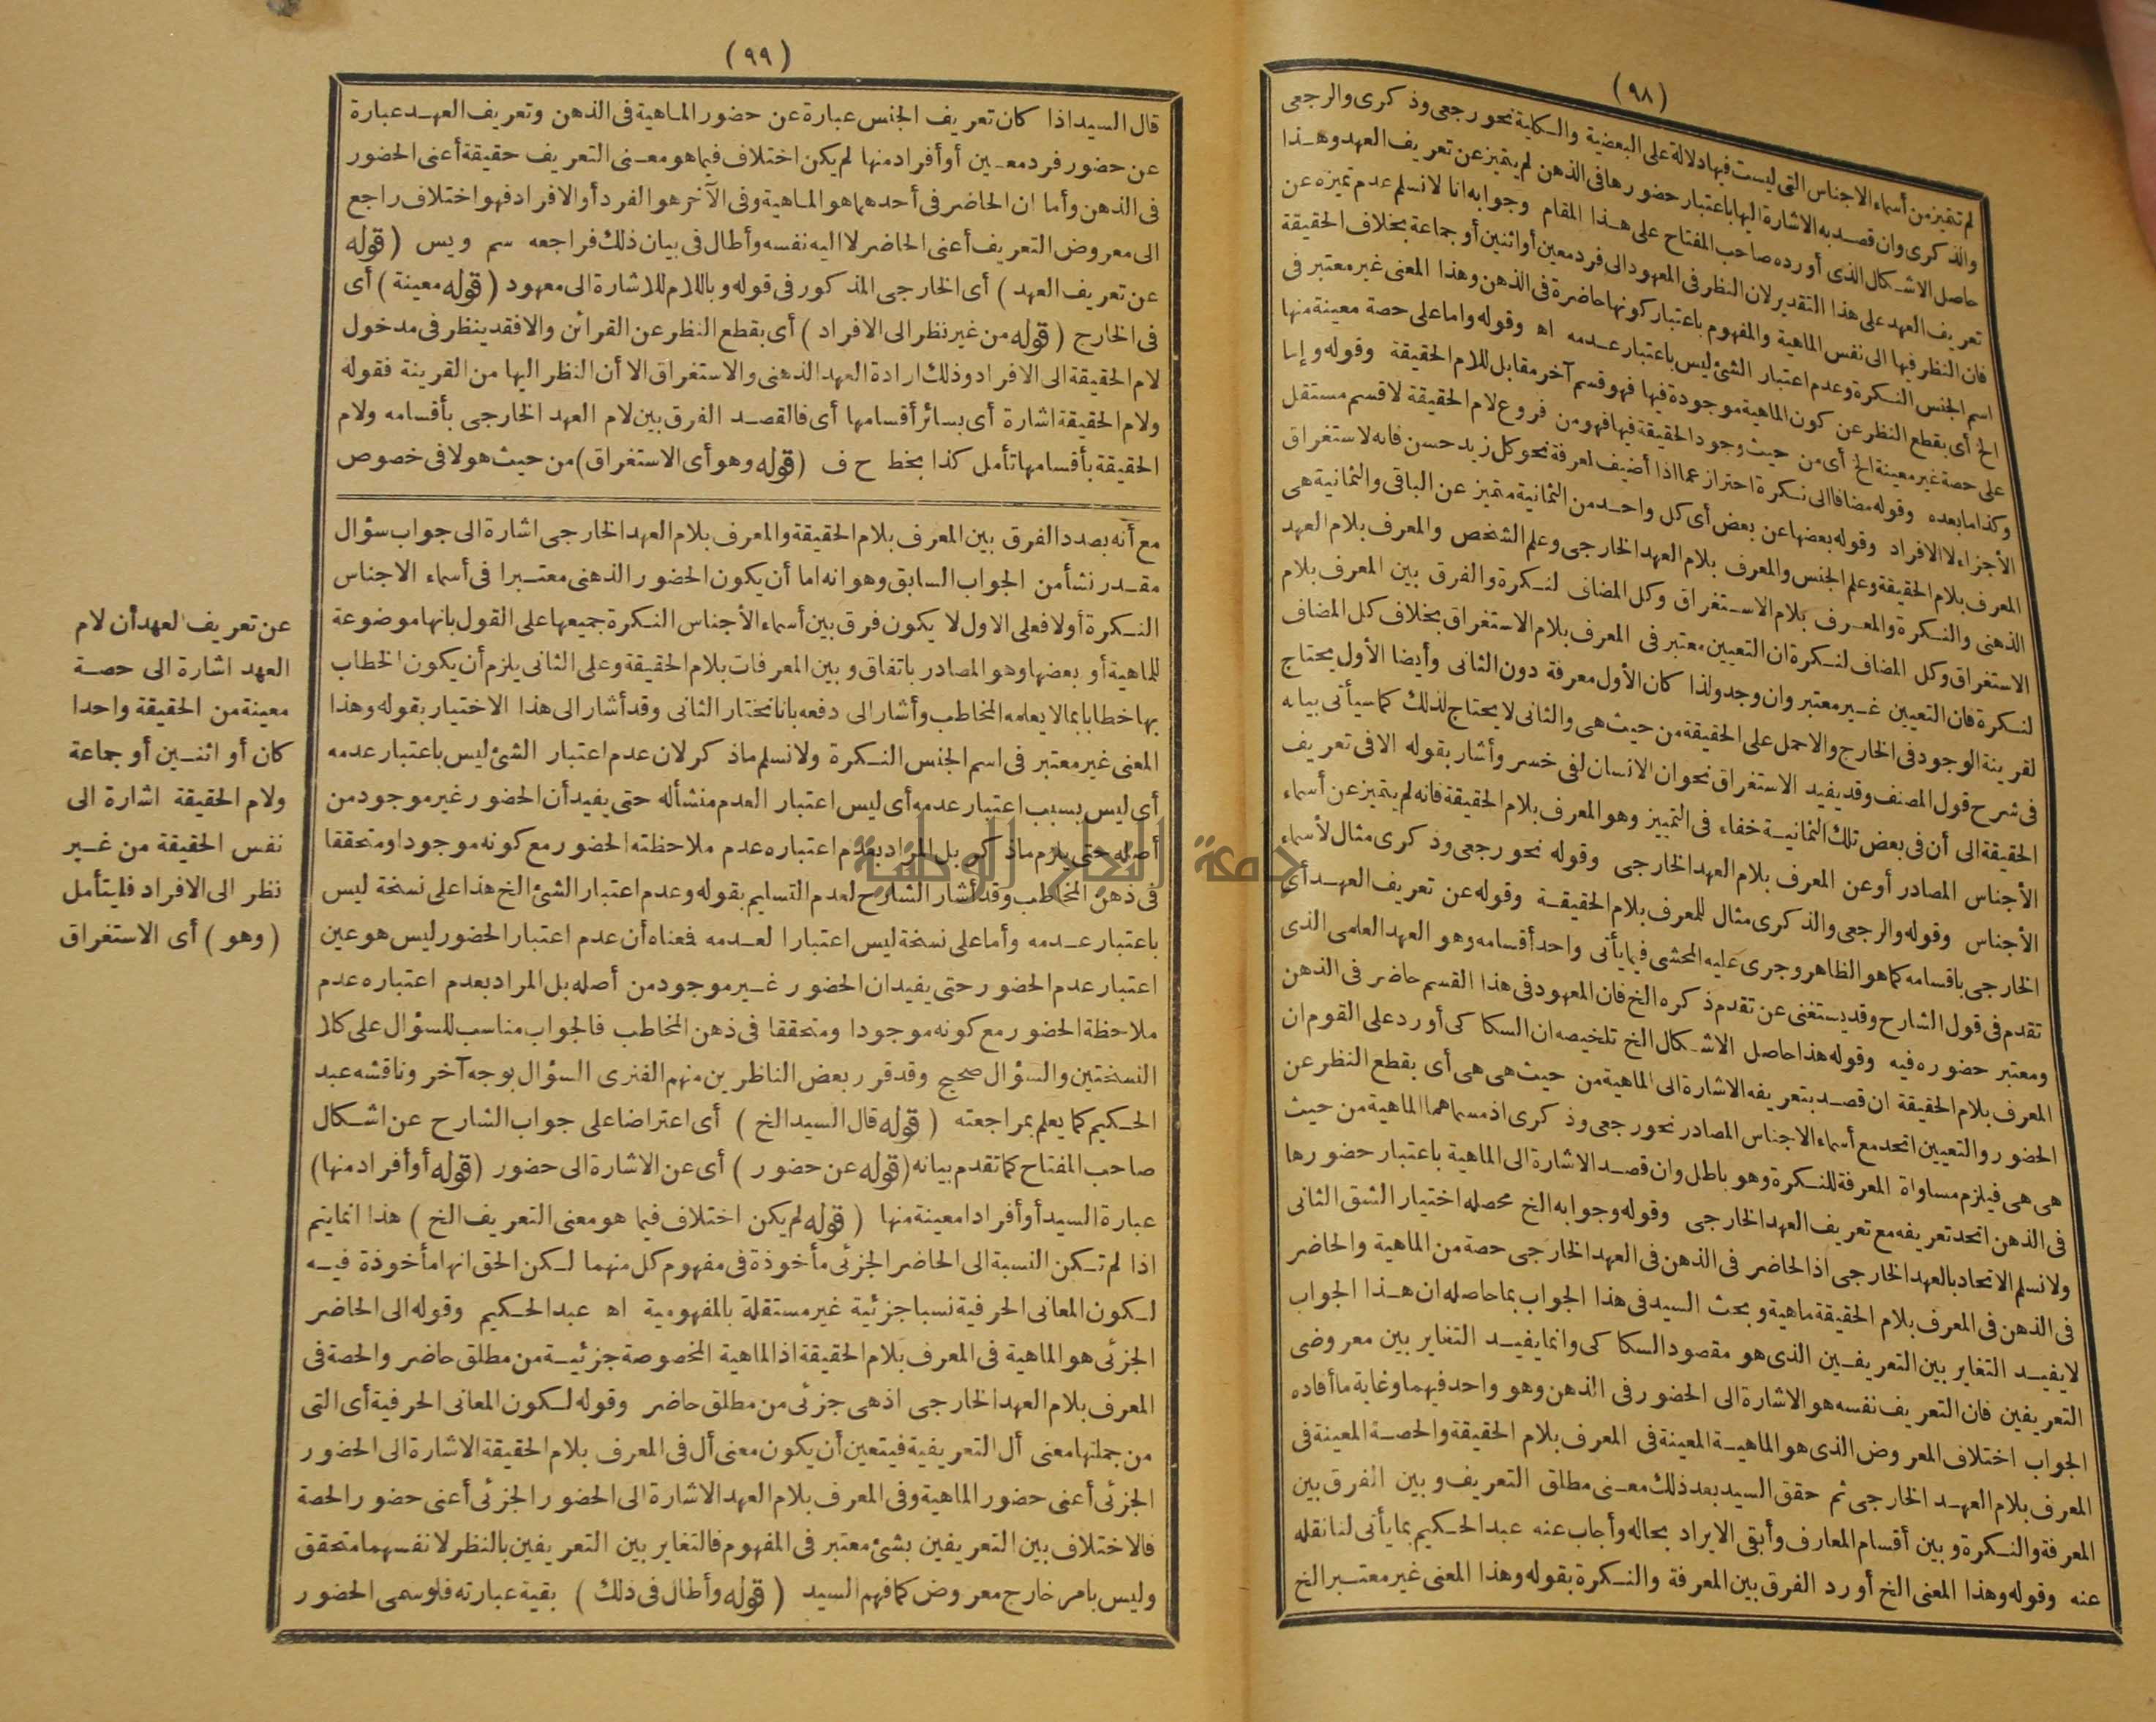 (٩٨)
لم تتميز من أسماء الاجناس التى ليست فيها دلالة على البعضية والكلية نحو رجعى وذكرى والرجعى
والذكرى وان قصد به الاشارة اليها باعتبار حضورها فى الذهن لم يتميز عن تعريف العهد وهذا
حاصل الاشكال الذى أورده صاحب المفتاح على هذا المقام وجوابه انا لا نسلم عدم تميزه عن
تعريف العهد على هذا التقدير لان النظر فى المعهود الى فرد معين أو اثنين أو جماعة بخلاف الحقيقة
فان النظر فيها الى نفس الماهية والمفهوم باعتبار كونها حاضرة فى الذهن وهذا المعنى غير معتبر فى
اسم الجنس النكرة وعدم اعتبار الشئ ليس باعتبار عدمه اه وقوله واما على حصة معينة منها
الخ أى بقطع النظر عن كون الماهية موجودة فيها فهو قسم آخر مقابل للام الحقيقة وقوله وإما
على حصة غير معينة الخ أى من حيث وجود الحقيقة فيها فهو من فروع لام الحقيقة لا قسم مستقل
وكذا ما بعده وقوله مضافا الى نكرة احتراز عما اذا أضيف لمعرفة نحو كل زيد حسن فانه لاستغراق
الأجزاء لا الافراد وقوله بعضها عن بعض أى كل واحد من الثمانية متميز عن الباقى والثمانية هى
المعرف بلام الحقيقة وعلم الجنس والمعرف بلام العهد الخارجى وعلم الشخص والمعرف بلام العهد
الذهنى والنكرة والمعرف بلام الاستغراق وكل المضاف لنكرة والفرق بين المعرف بلام
الاستغراق وكل المضاف لنكرة ان التعيين معتبر فى المعرف بلام الاستغراق بخلاف كل المضاف
لنكرة فان التعيين غير معتبر وان وجد ولذا كان الأول معرفة دون الثانى وأيضا الأول يحتاج
لقرينة الوجود فى الخارج والا حمل على الحقيقة من حيث هى والثانى لا يحتاج لذلك كما سيأتى بيانه
فى شرح قول المصنف وقد يفيد الاستغراق نحو ان الانسان لفى خسر وأشار بقوله الا فى تعريف
الحقيقة الى أن فى بعض تلك الثمانية خفاء فى التمييز وهو المعرف بلام الحقيقة فانه لم يتميز عن أسماء
الأجناس المصادر أو عن المعرف بلام العهد الخارجى وقوله نحو رجعى وذكرى مثال لأسماء
الأجناس وقوله والرجعى والذكرى مثال للمعرف بلام الحقيقة وقوله عن تعريف العهد أى
الخارجى باقسامه كما هو الظاهر وجرى عليه المحشى فيما يأتى واحد أقسامه وهو العهد العلمى الذى
تقدم فى قول الشارح وقد يستغنى عن تقدم ذكره الخ فان المعهود فى هذا القسم حاضر فى الذهن
ومعتبر حضوره فيه وقوله هذا حاصل الاشكال الخ تلخيصه ان السكاكى أورد على القوم ان
المعرف بلام الحقيقة ان قصد بتعريفه الاشارة الى الماهية من حيث هى هى أى بقطع النظر عن
الحضور والتعيين اتحد مع أسماء الاجناس المصادر نحو رجعى وذكرى اذ مسماهما الماهية من حيث
هى هى فيلزم مساواة المعرفة للنكرة وهو باطل وان قصد الاشارة الى الماهية باعتبار حضورها
فى الذهن اتحد تعريفه مع تعريف العهد الخارجى وقوله وجوابه الخ محصله اختيار الشق الثانى
ولا نسلم الاتحاد بالعهد الخارجى اذ الحاضر فى الذهن فى العهد الخارجى حصة من الماهية والحاضر
فى الذهن فى المعرف بلام الحقيقة ماهية وبحث السيد فى هذا الجواب بما حاصله ان هذا الجواب
لا يفيد التغاير بين التعريفين الذى هو مقصود السكاكى وانما يفيد التغاير بين معروضى
التعريفين فان التعريف نفسه هو الاشارة الى الحضور فى الذهن وهو واحد فيهما وغاية ما أفاده
الجواب اختلاف المعروض الذى هو الماهية المعينة فى المعرف بلام الحقيقة والحصة المعينة فى
المعرف بلام العهد الخارجى ثم حقق السيد بعد ذلك معنى مطلق التعريف وبين الفرق بين
المعرفة والنكرة وبين أقسام المعارف وأبقى الايراد بحاله وأجاب عنه عبد الحكيم بما يأتى لنا نقله
عنه وقوله وهذا المعنى الخ أورد الفرق بين المعرفة والنكرة بقوله وهذا المعنى غير معتبر الخ
(٩٩)
قال السيد اذا كان تعريف الجنس عبارة عن حضور الماهية فى الذهن وتعريف العهد عبارة
عن حضور فرد معين أو أفراد منها لم يكن اختلاف فيما هو معنى التعريف حقيقة أعنى الحضور
فى الذهن وأما ان الحاضر فى أحدهما هو الماهية وفى الآخر هو الفرد أو الافراد فهو اختلاف راجع
الى معروض التعريف أعنى الحاضر لا اليه نفسه وأطال فى بيان ذلك فراجعه سم ويس (قوله
عن تعريف العهد) أى الخارجى المذكور فى قوله وباللام للاشارة الى معهود (قوله معينة) أى
فى الخارج (قوله من غير نظر الى الافراد) أى بقطع النظر عن القرائن والا فقد ينظر فى مدخول
لام الحقيقة الى الافراد وذلك ارادة العهد الذهنى والاستغراق الا أن النظر اليها من القرينة فقوله
ولام الحقيقة اشارة أى بسائر أقسامها أى فالقصد الفرق بين لام العهد الخارجى بأقسامه ولام
الحقيقة بأقسامها تأمل كذا بخط ح ف (قوله وهو أى الاستغراق) من حيث هو لا فى خصوص
مع أنه بصدد الفرق بين المعرف بلام الحقيقة والمعرف بلام العهد الخارجى اشارة الى جواب سؤال
مقدر نشأ من الجواب السابق وهو انه اما أن يكون الحضور الذهنى معتبرا فى أسماء الاجناس
النكرة أولا فعلى الاول لا يكون فرق بين أسماء الأجناس النكرة جميعها على القول بانها موضوعة
للماهية أو بعضها وهو المصادر باتفاق وبين المعرفات بلام الحقيقة وعلى الثانى يلزم أن يكون الخطاب
بها خطابا بما لا يعلمه المخاطب وأشار الى دفعه بانا نختار الثانى وقد أشار الى هذا الاختيار بقوله وهذا
المعنى غير معتبر فى اسم الجنس النكرة ولا نسلم ما ذكر لان عدم اعتبار الشئ ليس باعتبار عدمه
أى ليس بسبب اعتبار عدمه أى ليس اعتبار العدم منشأ له حتى يفيد أن الحضور غير موجود من
أصله حتى يلزم ما ذكر بل المراد بعدم اعتباره عدم ملاحظته الحضور مع كونه موجودا ومتحققا
فى ذهن المخاطب وقد أشار الشارح لعدم التسليم بقوله وعدم اعتبار الشئ الخ هذا على نسخة ليس
باعتبار عدمه وأما على نسخة ليس اعتبارا لعدمه فمعناه أن عدم اعتبار الحضور ليس هو عين
اعتبار عدم الحضور حتى يفيد ان الحضور غير موجود من أصله بل المراد بعدم اعتباره عدم
ملاحظة الحضور مع كونه موجودا ومتحققا فى ذهن المخاطب فالجواب مناسب للسؤال على كلا
النسختين والسؤال صحيح وقد قرر بعض الناظرين منهم الفنرى السؤال بوجه آخر وناقشه عبد
الحكيم كما يعلم بمراجعته (قوله قال السيد الخ) أى اعتراضا على جواب الشارح عن اشكال
صاحب المفتاح كما تقدم بيانه (قوله عن حضور) أى عن الاشارة الى حضور (قوله أو أفراد منها)
عبارة السيد أو أفرادا معينة منها (قوله لم يكن اختلاف فيما هو معنى التعريف الخ) هذا انما يتم
اذا لم تكن النسبة الى الحاضر الجزئى مأخوذة فى مفهوم كل منهما لكن الحق انها مأخوذة فيه
لكون المعانى الحرفية نسبا جزئية غير مستقلة بالمفهومية اه عبد الحكيم وقوله الى الحاضر
الجزئى هو الماهية فى المعرف بلام الحقيقة اذ الماهية المخصوصة جزئية من مطلق حاضر والحصة فى
المعرف بلام العهد الخارجى اذ هى جزئى من مطلق حاضر وقوله لكون المعانى الحرفية أى التى
من جملتها معنى أل التعريفية فيتعين أن يكون معنى أل فى المعرف بلام الحقيقة الاشارة الى الحضور
الجزئى أعنى حضور الماهية وفى المعرف بلام العهد الاشارة الى الحضور الجزئى أعنى حضور الحصة
فالاختلاف بين التعريفين بشئ معتبر فى المفهوم فالتغاير بين التعريفين بالنظر لانفسهما متحقق
وليس بامر خارج معروض كما فهم السيد (قوله وأطال فى ذلك) بقية عبارته فلو سمى الحضور
عن تعريف العهد أن لام
العهد اشارة الى حصة
معينة من الحقيقة واحدا
كان أو اثنين أو جماعة
ولام الحقيقة اشارة الى
نفس الحقيقة من غير
نظر الى الافراد فليتأمل
(وهو) أى الاستغراق
جامعة النجاح الوطنية